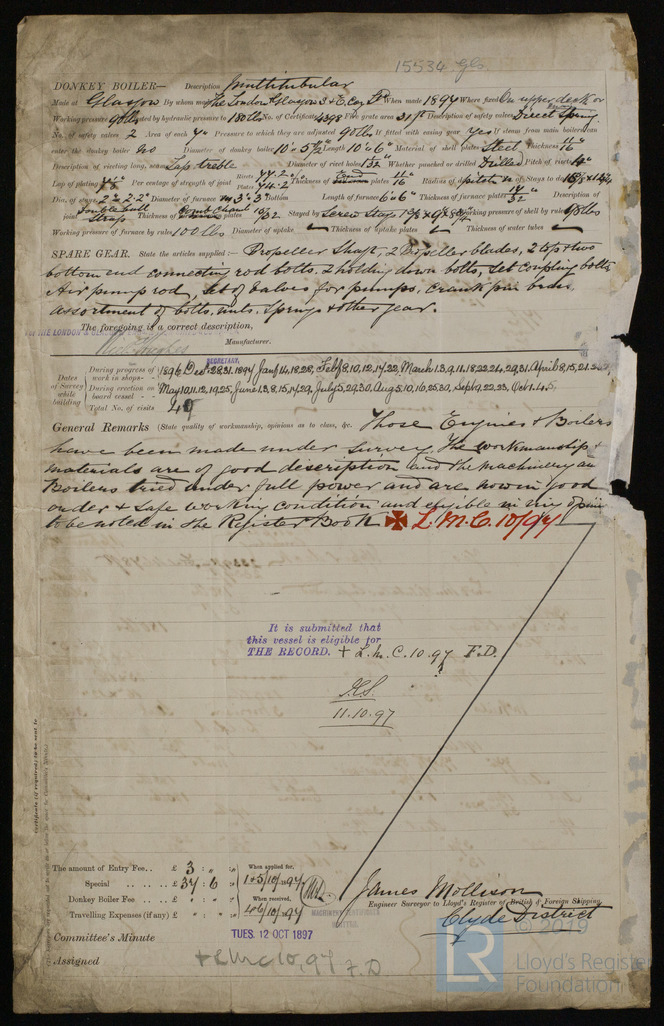 15534 Gls
DONKEY BOILER— Description Multitubular
Made at Glasgow By whom made The London & Glasgow S & E. Coy Ld When made 1897 Where fixed On upper deck
Working pressure 90 lbs tested by hydraulic pressure to 180 lbs No. of Certificate 4398 Fire grate area 31 ft Description of safety valves Direct Spring
No. of safety valves 2 Area of each 7" Pressure to which they are adjusted 90 lbs If fitted with easing gear Yes If steam from main boilers can
enter the donkey boiler No Diameter of donkey boiler 10'-5½" Length 10'6" Material of shell plates Steel Thickness 11/16
Description of riveting long. seams Lap treble Diameter of rivet holes Whether punched or drilled Drilled Pitch of rivets 4"
Lap of plating Per centage of strength of joint Rivets 77.2 Plates 74.2 Thickness of End plates 11/16 Radius of Pitch of Stays to do
Dia. of stays Diameter of furnace 3'3" Bottom Length of furnace 6'6" Thickness of furnace plates 17/32" Description of
joint Double butt Straps Thickness of Comb Chamr plates Stayed by Screw Stays Working pressure of shell by rules
Working pressure of furnace by rules 100 lbs Diameter of uptake Thickness of uptake plates Thickness of water tubes
SPARE GEAR. State the articles supplied:— Propeller Shaft, 2 Propeller blades, 2 top & two
bottom end connecting rod bolts. 2 holding down bolts, Set Coupling bolts
Air pump rod, Set of valves for pumps, Crank pin brass,
assortment of bolts, nuts, Springs & other gear.
The foregoing is a correct description,
Manufacturer.
SECRETARY.
Dates of Survey while building
During progress of work in shops-- 1896 Dec. 28, 31. 1897 Jany 14, 18, 28, Feby 8, 10, 12, 17, 22, March 1, 3, 9, 11, 18, 22, 24, 29, 31, April 8, 15, 21,
During erection on board vessel--- May 10, 11, 12, 19, 25, June 1, 3, 8, 15, 17, 29, July 5, 29, 30, Aug 5, 10, 16, 25, 30, Sept 9, 22, 23, Oct 1, 4, 5
Total No. of visits 49
General Remarks (State quality of workmanship, opinions as to class, &c. These Engines & Boilers
have been made under Survey. The workmanship &
materials are of good description and the machinery an
Boilers tried under full power and are now in good
order & Safe working condition and eligible in my opinion
to be noted in the Register Book ✠ L.M.C. 10/97
It is submitted that
this vessel is eligible for
THE RECORD. + L.M.C. 10.97 F.D.
11.10.97
Certificate (if required) to be sent to
The amount of Entry Fee.. £ 3 : " : " When applied for,
Special .... £ 37 : 6 : " 15/10/1897
Donkey Boiler Fee .... £ " : " : " When received,
Travelling Expenses (if any) £ " : " : " 16/10/97
James Mollison
Engineer Surveyor to Lloyd's Register of British & Foreign Shipping.
Clyde District
Committee's Minute TUES. 12 OCT 1897
Assigned + LMC 10,97 F.D
© 2019
LR
Lloyd's Register
Foundation